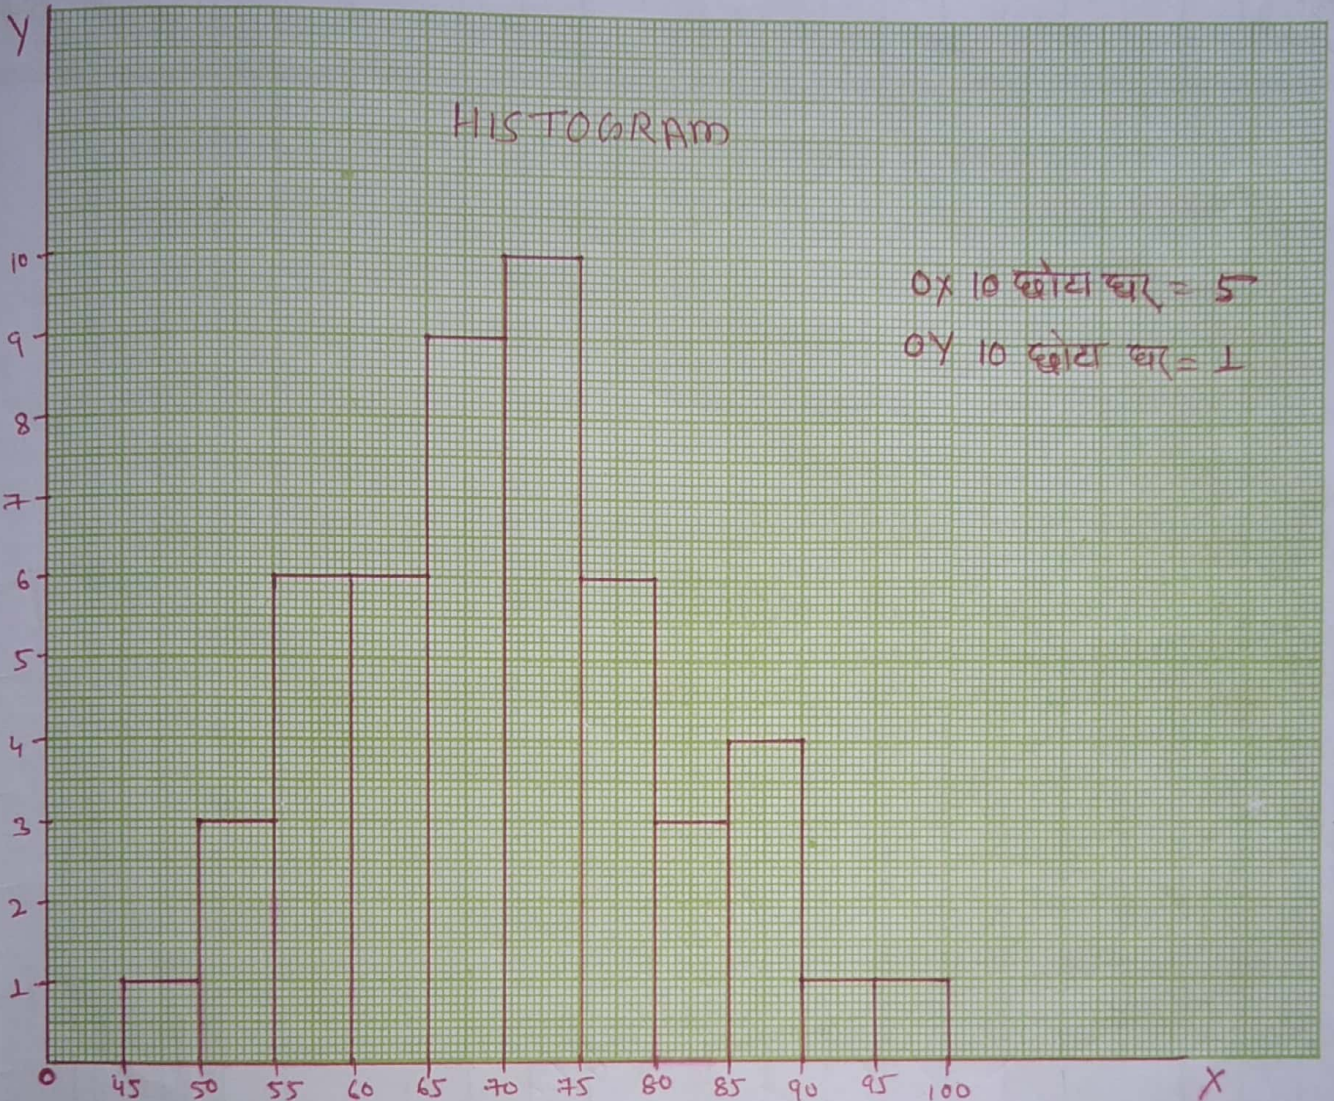 Y
HISTOGRAM
OX 10 छोटा घर = 5
OY 10 छोटा घर = 1
10
9
8
7
6
5
4
3
2
1
0 45 50 55 60 65 70 75 80 85 90 95 100 X